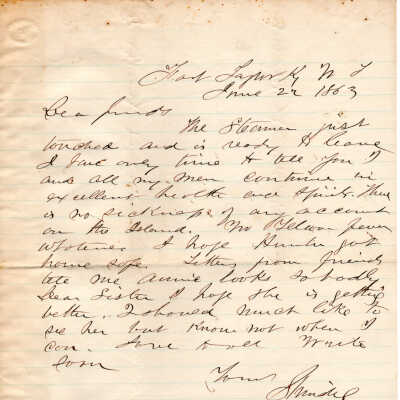 Fort Taylor Ky W F
June 22 1863
Dea friends
The Steamer just
touched and is ready to leave
I have only time to tell you I
and all my men continue in
excellent health and spirits. There
is no sickness of any account
on the Island. No Yellow fever
whatever. I hope got
home safe. Letters from friends
tell me Annie looks so badly
Dear Sister I hope she is getting
better. I should much like to
see her but know not when I
can. Love to all Write
soon
Yours